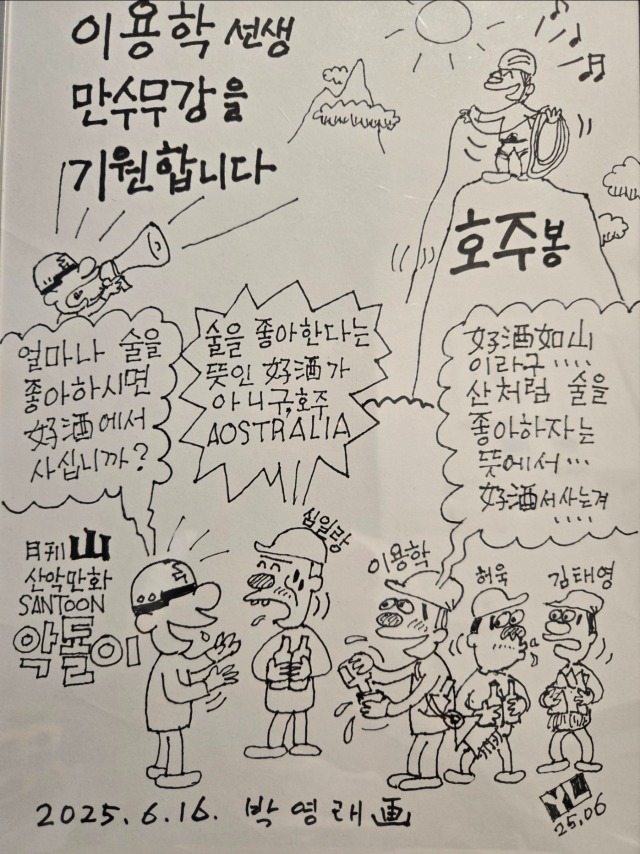 이용학 선생
만수무강을
기원합니다
호주봉
얼마나 술을
좋아하시면
好酒에서
사십니까?
술을 좋아한다는
뜻인 好酒가
아니구, 호주
AOSTRALIA
好酒如山
이라구....
산처럼 술을
좋아하자는
뜻에서...
好酒서 사는겨
....
月刊 山
산악만화
SANTOON
악돌이
심일랑
이용학
허욱
김태영
2025.6.16. 박영래 画
25.06